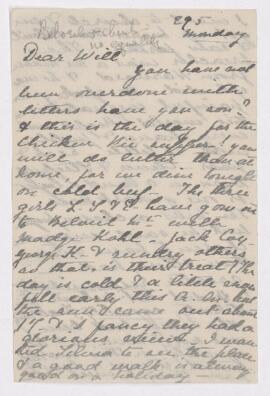 295
Monday
Dear Will
you have not
been overdone with
letters have you son?
& this is the day for the
chicken pie supper! you
will do better than at
home, for we dine tonight
on cold beef — The three
girls L. S & I have gone on
to Belmont with
Madge Kohl — Jack Coy
George K. & sundry others
so that is their treat! The
day is cold & a little snow
fell early this A.M. but
the sun came out about
11 & I fancy they had a
glorious
to see the place
& a good walk is always
good on a holiday —